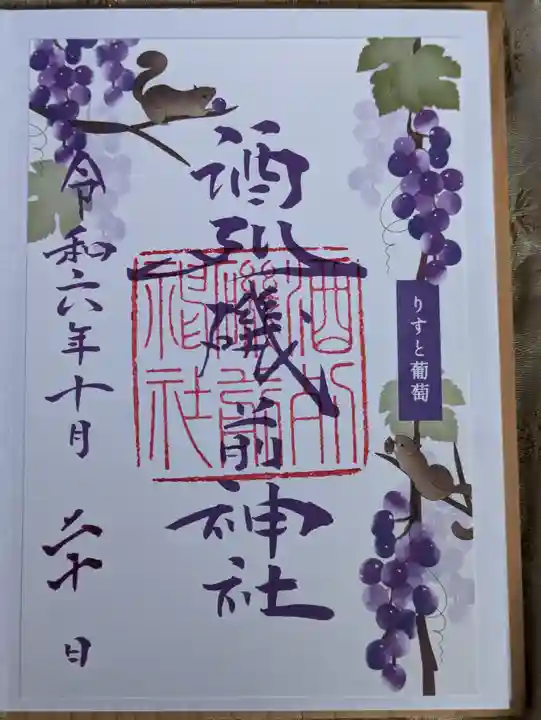 りすと葡萄
酒列磯前神社
酒列磯前神社
令和六年十月二十日